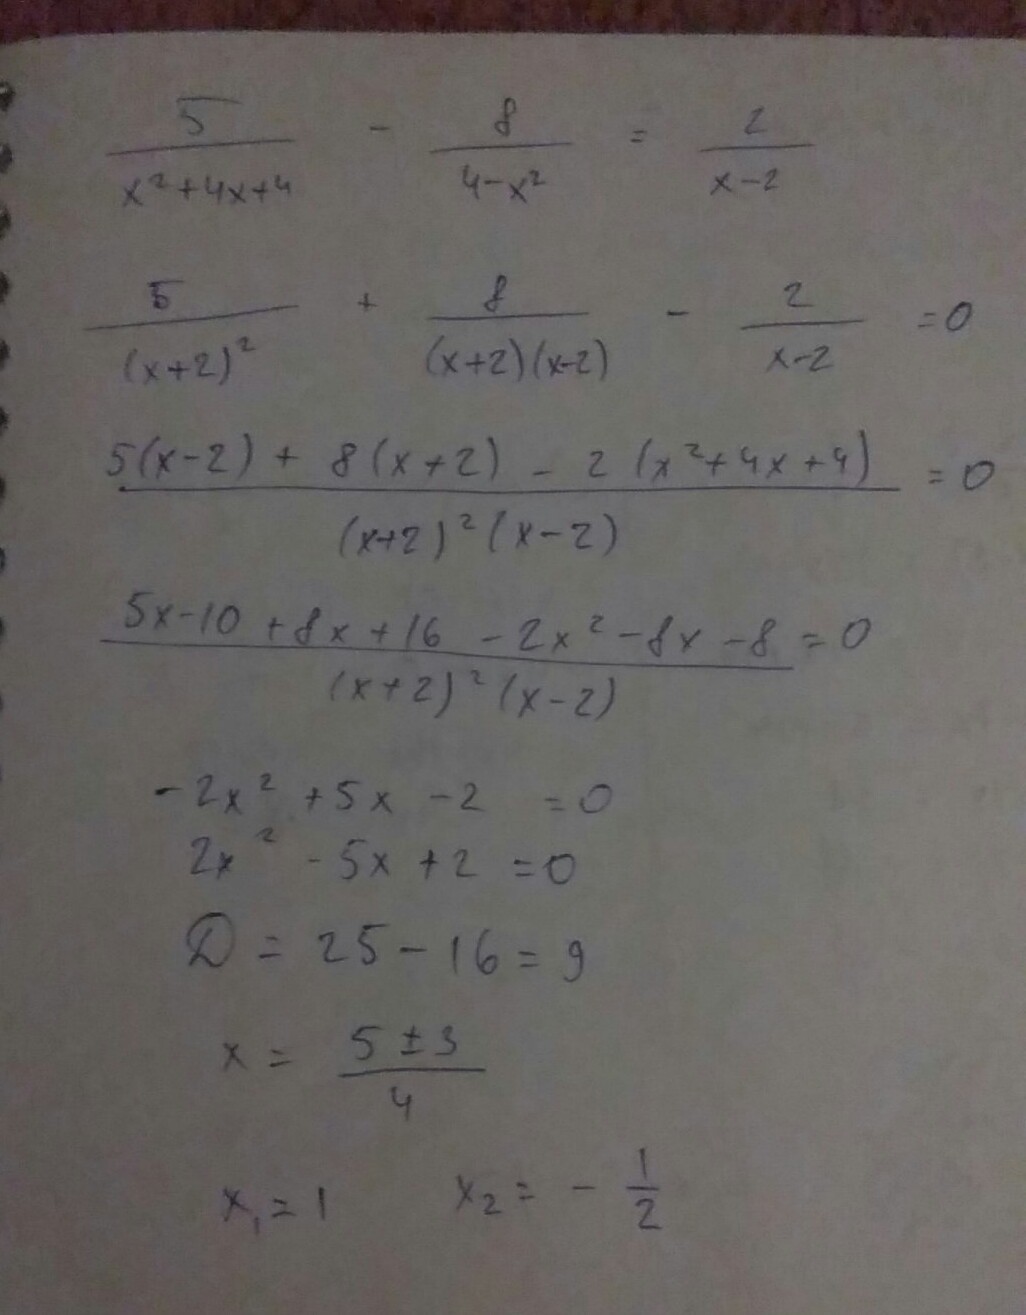 5/(x²+4x+4) - 8/(4-x²) = 2/(x-2)
5/(x+2)² + 8/((x+2)(x-2)) - 2/(x-2) =0
(5(x-2) + 8(x+2) - 2(x²+4x+4))/((x+2)²(x-2)) =0
(5x-10 +8x+16 -2x²-8x-8)/((x+2)²(x-2)) =0
-2x² +5x -2 =0
2x² -5x +2 =0
D = 25-16=9
x = (5±3)/4
x₁=1 x₂= -1/2